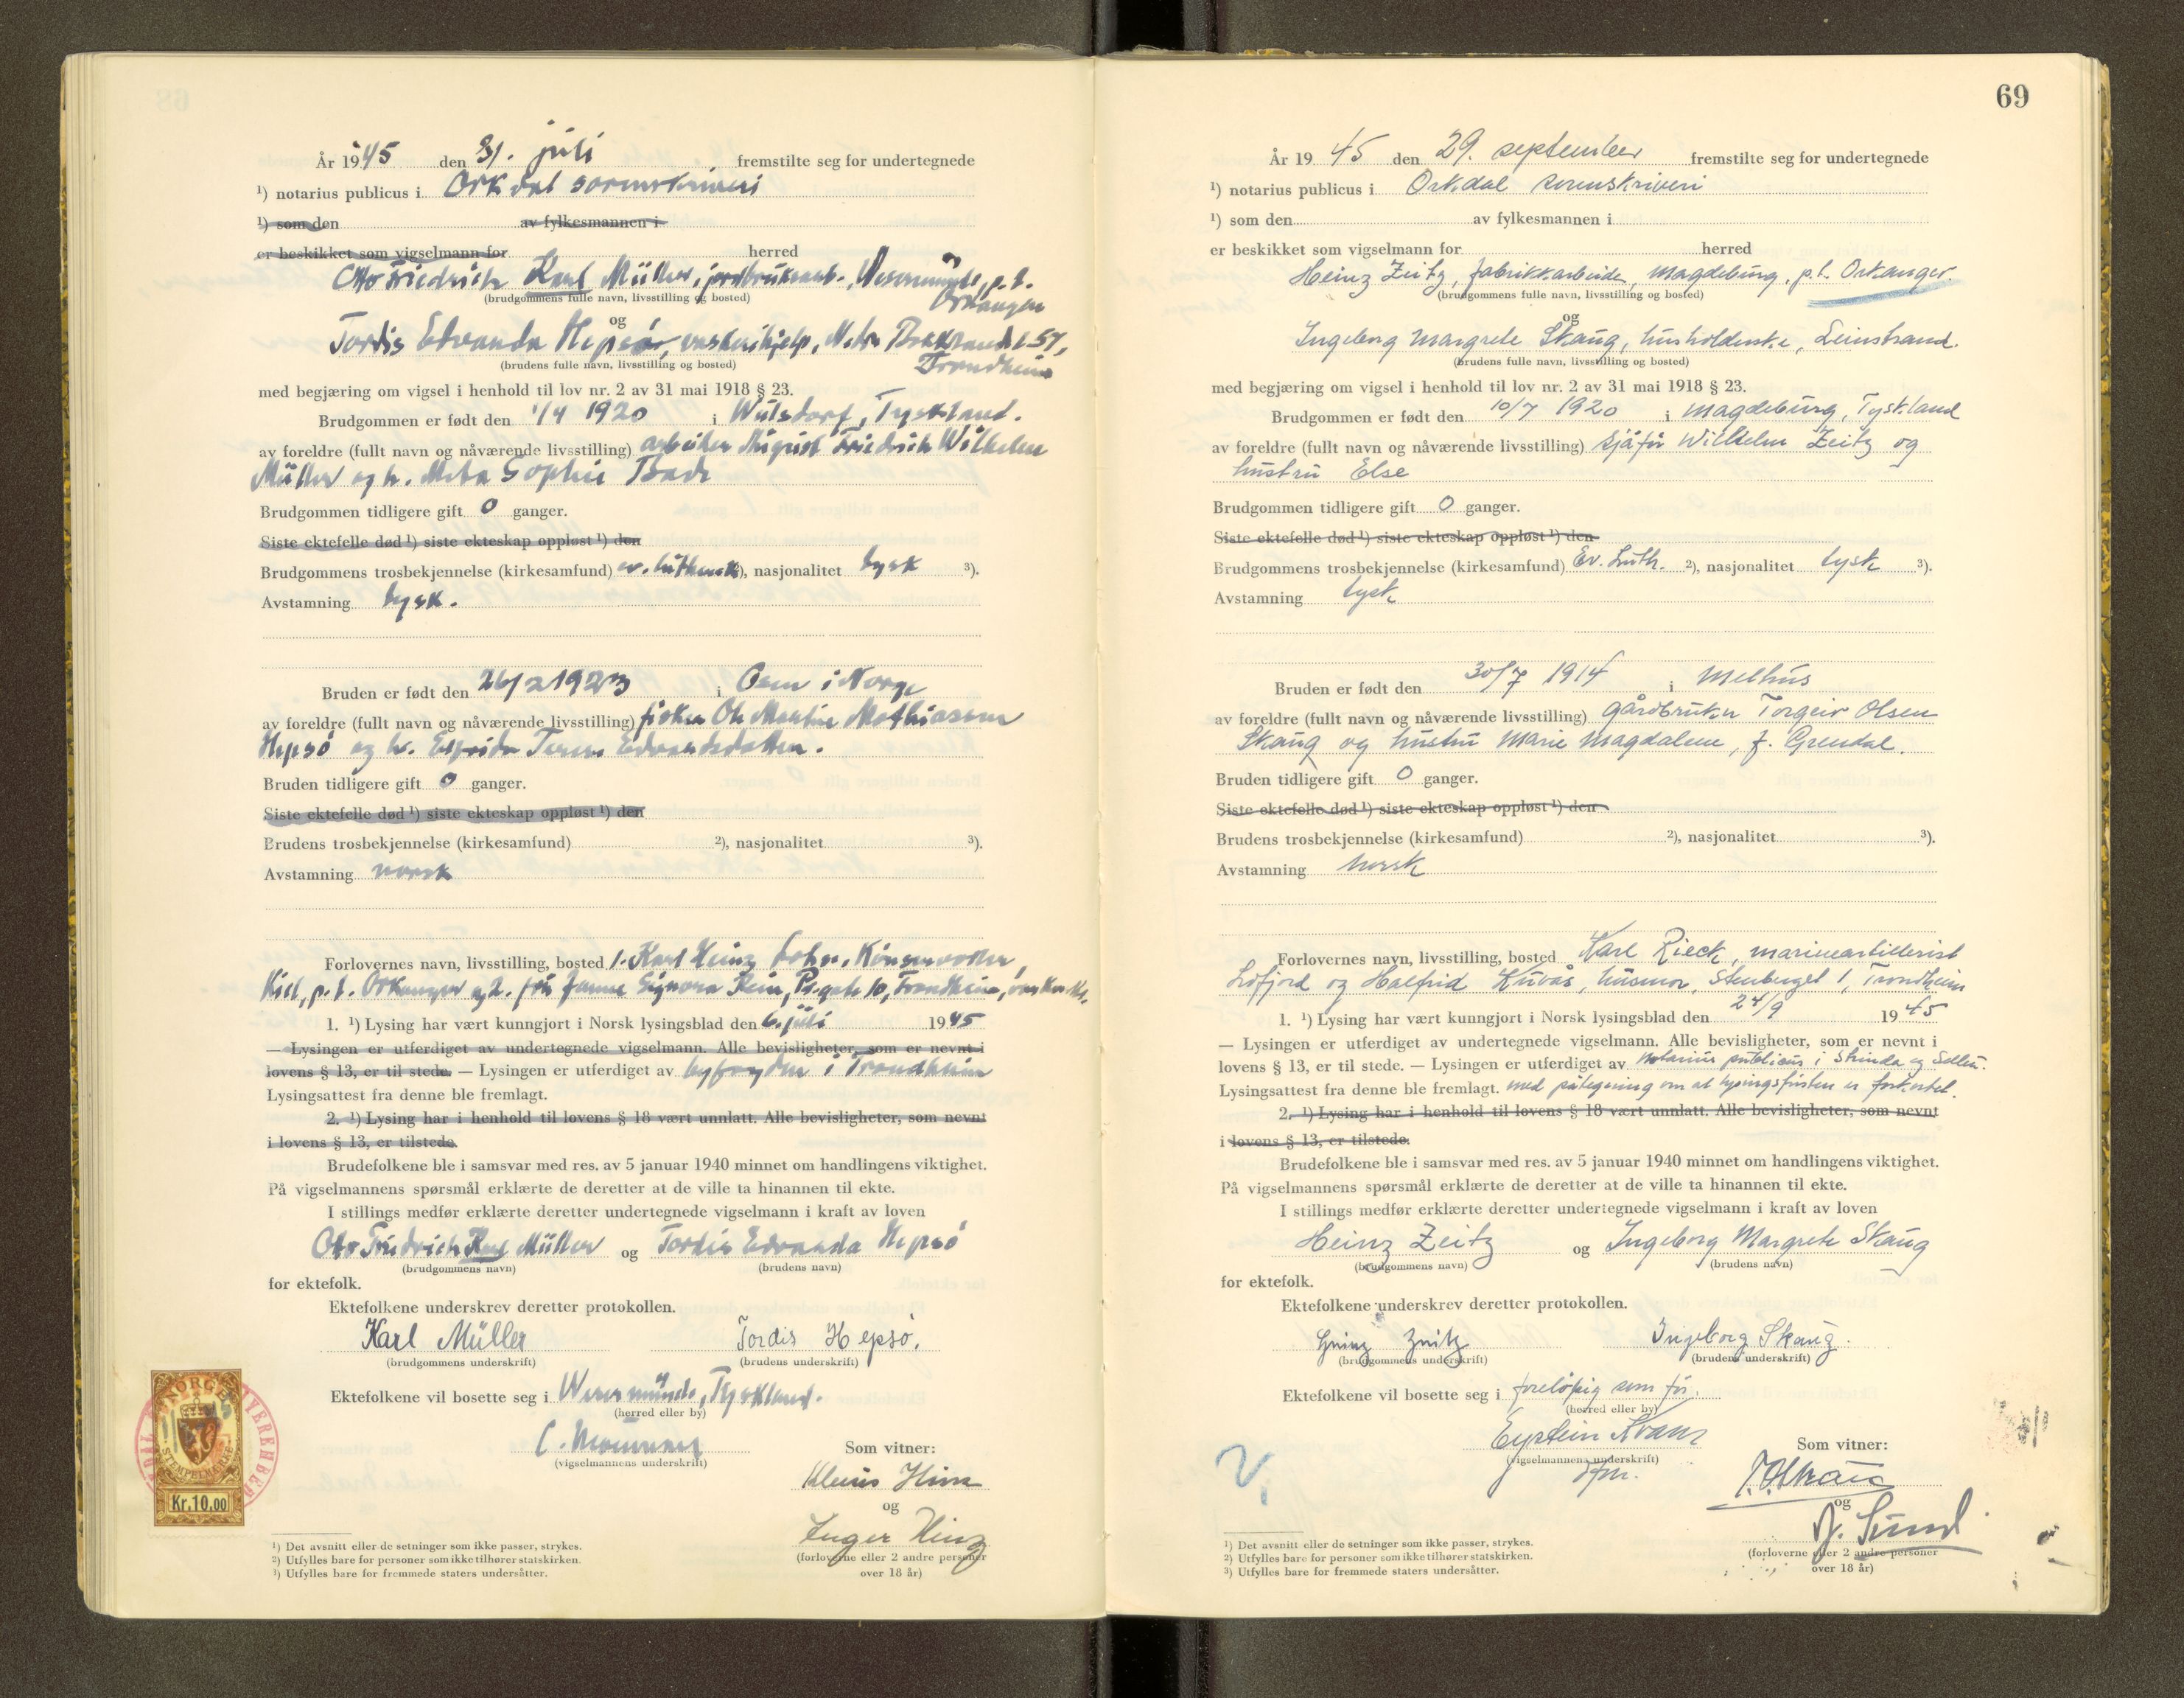 År 1945 den 31. juli fremstilte seg for undertegnede
¹) notarius publicus i Orkdal sorenskriveri
¹) som den av fylkesmannen i
er beskikket som vigselmann for herred
Otto Friedrich Karl Müller, jordbruksarb., Wesermünde, p.t.
Orkanger
(brudgommens fulle navn, livsstilling og bosted)
og
Tordis Edvarda Hepsø, vaskerihjelp, Nedre Bakklandet 57,
Trondheim
(brudens fulle navn, livsstilling og bosted)
med begjæring om vigsel i henhold til lov nr. 2 av 31 mai 1918 § 23.
Brudgommen er født den 1/4 1920 i Wulsdorf, Tyskland.
av foreldre (fullt navn og nåværende livsstilling) arbeider August Friedrich Wilhelm
Müller og h. Meta Sophie Bade
Brudgommen tidligere gift 0 ganger.
Siste ektefelle død ¹) siste ekteskap oppløst ¹) den
Brudgommens trosbekjennelse (kirkesamfund) ev. luthersk ²), nasjonalitet tysk ³).
Avstamning tysk.
Bruden er født den 26/2 1923 i Osen i Norge
av foreldre (fullt navn og nåværende livsstilling) fisker Ole Martin Mathiassen
Hepsø og h. Elfrida Edvardsdatter.
Bruden tidligere gift 0 ganger.
Siste ektefelle død ¹) siste ekteskap oppløst ¹) den
Brudens trosbekjennelse (kirkesamfund) ²), nasjonalitet ³).
Avstamning norsk
Forlovernes navn, livsstilling, bosted 1. Karl Heinz
Kiel, p.t. Orkanger og 2. Signora Rein, Pr.gate 10, Trondheim,
1. ¹) Lysing har vært kunngjort i Norsk lysingsblad den 6. juli 1945
— Lysingen er utferdiget av undertegnede vigselmann. Alle bevisligheter, som er nevnt i
lovens § 13, er til stede. — Lysingen er utferdiget av byfogden i Trondheim
Lysingsattest fra denne ble fremlagt.
2. ¹) Lysing har i henhold til lovens § 18 vært unnlatt. Alle bevisligheter, som nevnt
i lovens § 13, er tilstede.
Brudefolkene ble i samsvar med res. av 5 januar 1940 minnet om handlingens viktighet.
På vigselmannens spørsmål erklærte de deretter at de ville ta hinannen til ekte.
I stillings medfør erklærte deretter undertegnede vigselmann i kraft av loven
Otto Friedrich Karl Müller og Tordis Edvarda Hepsø
(brudgommens navn) (brudens navn)
for ektefolk.
Ektefolkene underskrev deretter protokollen.
Karl Müller Tordis Hepsø.
(brudgommens underskrift) (brudens underskrift)
Ektefolkene vil bosette seg i Wesermünde, Tyskland.
(herred eller by)
(vigselmannens underskrift)
Som vitner:
og
Inger Hinz
(forloverne eller 2 andre personer
over 18 år)
NORGE
STEMPELMERKE
Kr.10.00
¹) Det avsnitt eller de setninger som ikke passer, strykes.
²) Utfylles bare for personer som ikke tilhører statskirken.
³) Utfylles bare for fremmede staters undersåtter.
69
År 1945 den 29. september fremstilte seg for undertegnede
¹) notarius publicus i Orkdal sorenskriveri
¹) som den av fylkesmannen i
er beskikket som vigselmann for herred
Heinz Zeitz, fabrikkarbeider, Magdeburg, p.t. Orkanger.
(brudgommens fulle navn, livsstilling og bosted)
og
Ingeborg Margrete Skaug, husholderske, Leinstrand.
(brudens fulle navn, livsstilling og bosted)
med begjæring om vigsel i henhold til lov nr. 2 av 31 mai 1918 § 23.
Brudgommen er født den 10/7 1920 i Magdeburg, Tyskland
av foreldre (fullt navn og nåværende livsstilling) sjåfør Wilhelm Zeitz og
hustru Else
Brudgommen tidligere gift 0 ganger.
Siste ektefelle død ¹) siste ekteskap oppløst ¹) den
Brudgommens trosbekjennelse (kirkesamfund) Ev. Luth. ²), nasjonalitet tysk ³).
Avstamning tysk
Bruden er født den 30/7 1914 i Melhus
av foreldre (fullt navn og nåværende livsstilling) gårdbruker Torgeir Olsen
Skaug og hustru Marie Magdalene, f. Grendal.
Bruden tidligere gift 0 ganger.
Siste ektefelle død ¹) siste ekteskap oppløst ¹) den
Brudens trosbekjennelse (kirkesamfund) ²), nasjonalitet ³).
Avstamning norsk
Forlovernes navn, livsstilling, bosted Karl Rieck, marineartillerist
Lofjord og Halfrid Huvås, husmor, Stenberget 1, Trondheim
1. ¹) Lysing har vært kunngjort i Norsk lysingsblad den 24/9 1945
— Lysingen er utferdiget av undertegnede vigselmann. Alle bevisligheter, som er nevnt i
lovens § 13, er til stede. — Lysingen er utferdiget av notarius publicus i Strinda og Selbu.
Lysingsattest fra denne ble fremlagt. med påtegning om at lysingsfristen er forkortet.
2. ¹) Lysing har i henhold til lovens § 18 vært unnlatt. Alle bevisligheter, som nevnt
i lovens § 13, er tilstede.
Brudefolkene ble i samsvar med res. av 5 januar 1940 minnet om handlingens viktighet.
På vigselmannens spørsmål erklærte de deretter at de ville ta hinannen til ekte.
I stillings medfør erklærte deretter undertegnede vigselmann i kraft av loven
Heinz Zeitz og Ingeborg Margrete Skaug
(brudgommens navn) (brudens navn)
for ektefolk.
Ektefolkene underskrev deretter protokollen.
Heinz Zeitz Ingeborg Skaug.
(brudgommens underskrift) (brudens underskrift)
Ektefolkene vil bosette seg i foreløpig som før.
(herred eller by)
Eystein
(vigselmannens underskrift)
Som vitner:
T. O. Skaug
og
(forloverne eller 2 andre personer
over 18 år)
¹) Det avsnitt eller de setninger som ikke passer, strykes.
²) Utfylles bare for personer som ikke tilhører statskirken.
³) Utfylles bare for fremmede staters undersåtter.